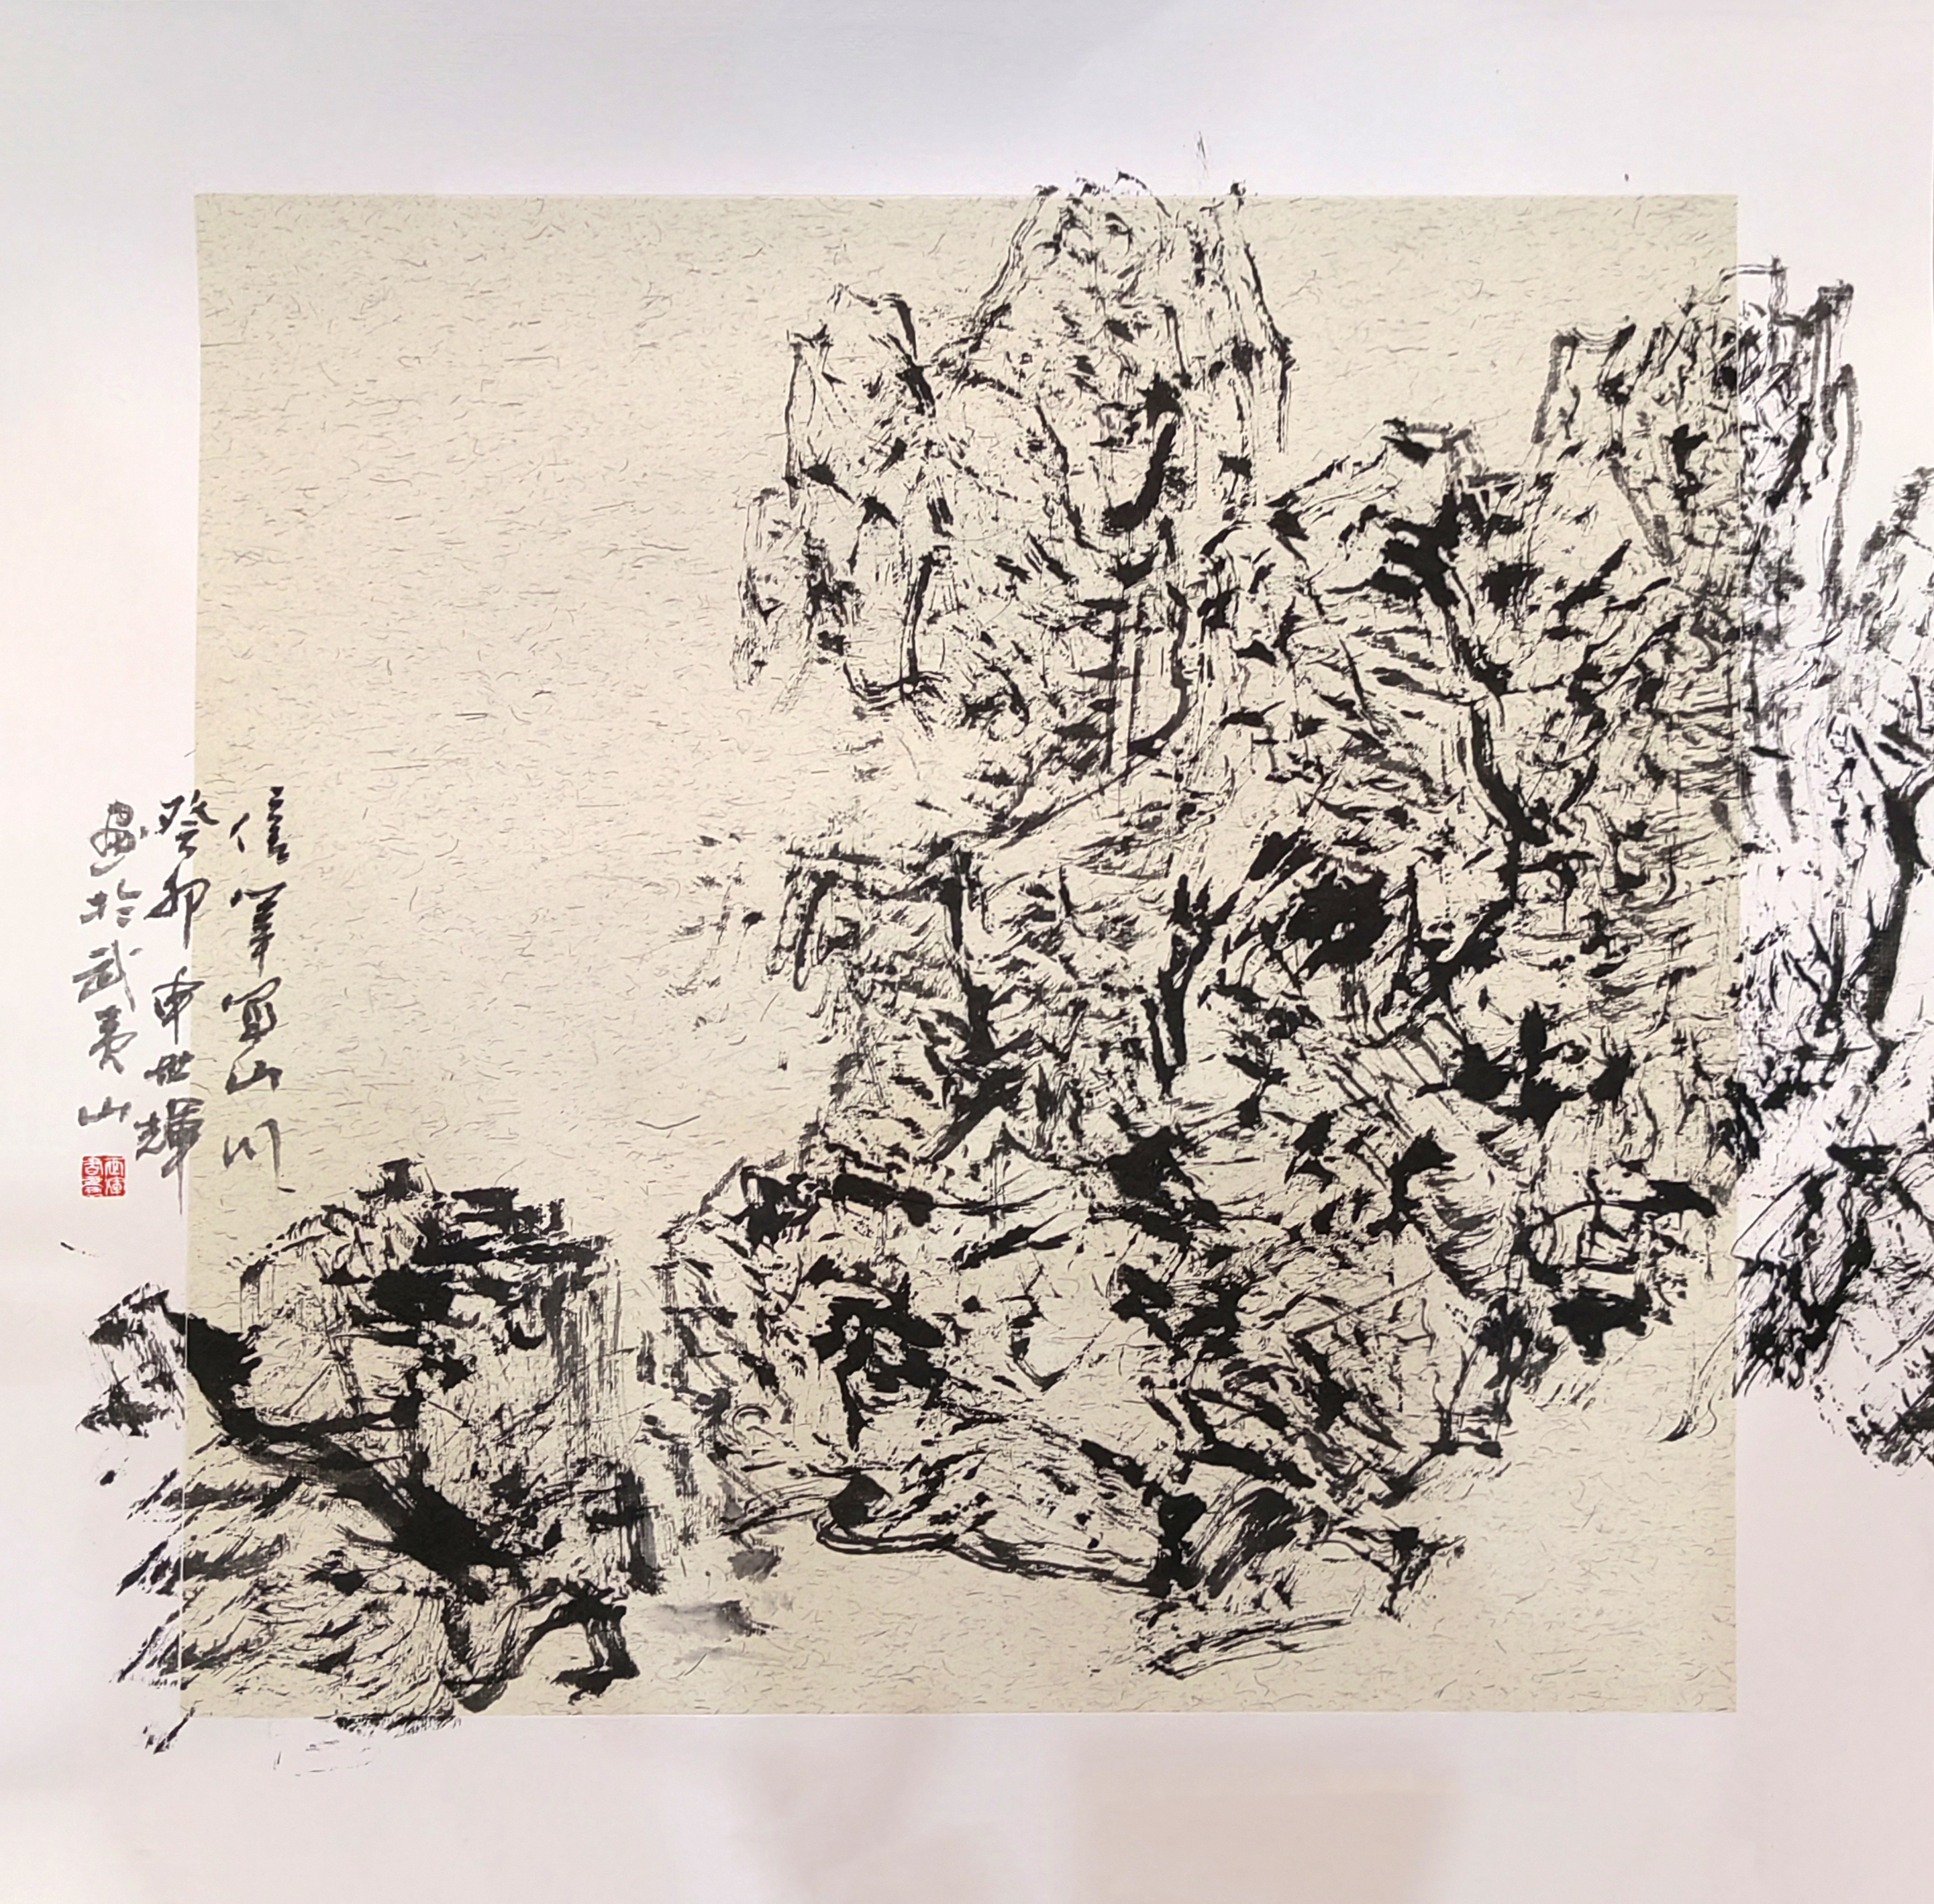 信筆寫山川
癸卯申世輝
畫於武夷山